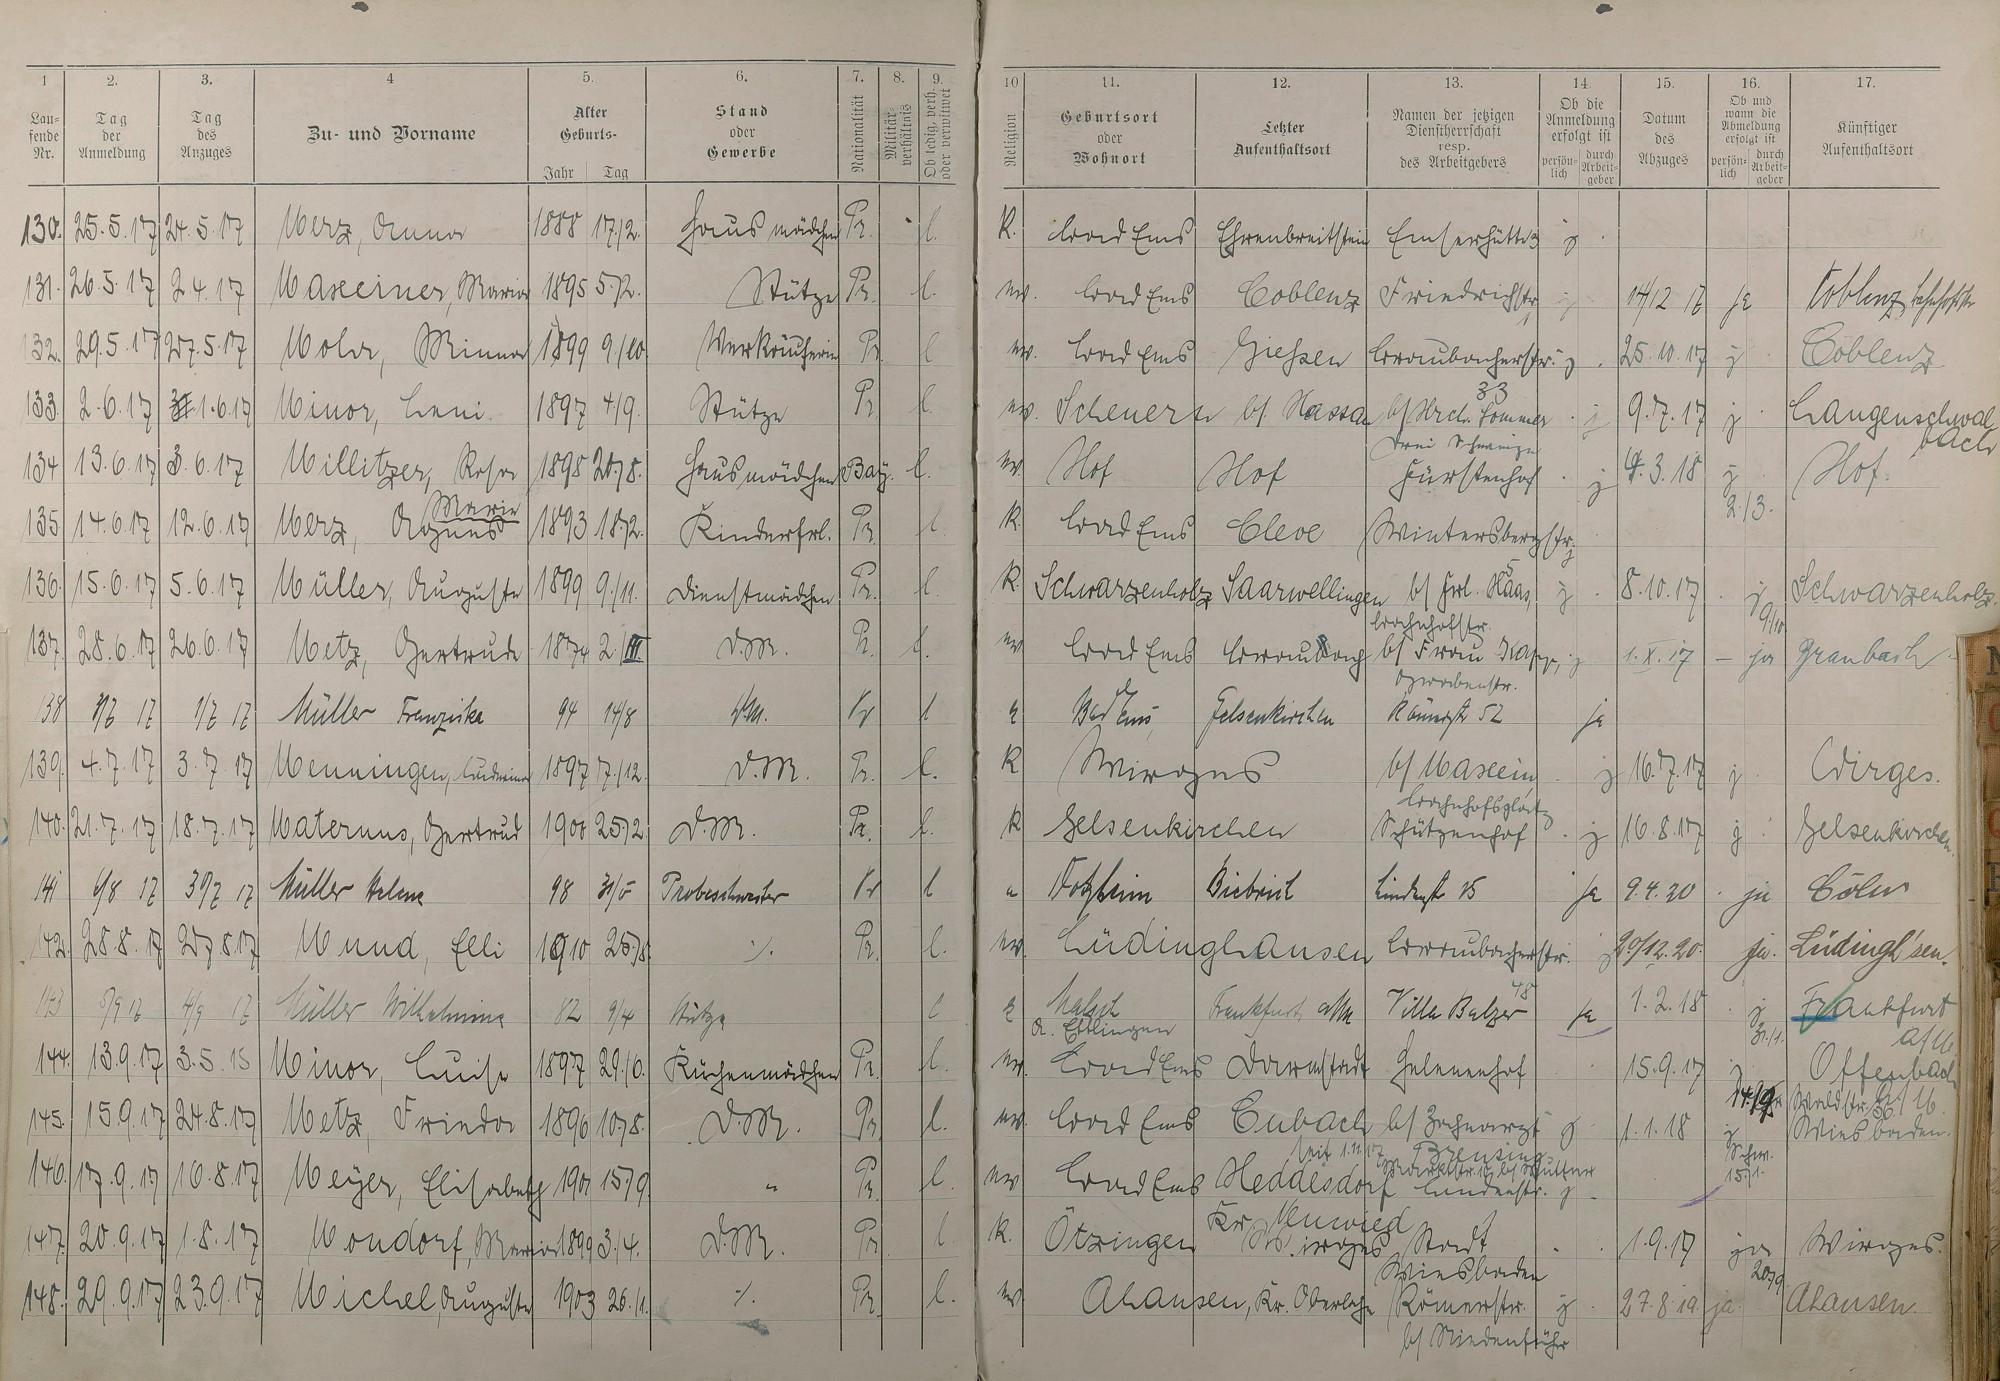 1 2. 3. 4 5. 6. 7. 8. 9. 10 11. 12. 13. 14. 15. 16. 17.
Lau- fende Nr. Tag der Anmeldung Tag des Anzuges Zu- und Vorname Alter Geburts- Jahr Tag Stand oder Gewerbe Nationalität Militär- verhältnis Ob ledig, verh. oder verwitwet Religion Geburtsort oder Wohnort Letzter Aufenthaltsort Namen der jetzigen Dienstherrschaft resp. des Arbeitgebers Ob die Anmeldung erfolgt ist persön- lich durch Arbeit- geber Datum des Abzuges Ob und wann die Abmeldung erfolgt ist persön- lich durch Arbeit- geber Künftiger Aufenthaltsort
130. 25.5.17 24.5.17 Merz, Anna 1888 17/2. Hausmädchen Pr. l. K. Bad Ems Ehrenbreitstein Emserhütte j.
131. 26.5.17 2.4.17 Maxeiner, Maria 1895 5/2. Stütze Pr. l. ev. Bad Ems Coblenz Friedrichstr. j 14/12 17 ja Coblenz
132. 29.5.17 27.5.17 Mola, Minna 1899 9/10 Verkäuferin Pr. l ev. Bad Ems Giessen Braubacherstr. j. 25.10.17 j Coblenz
33
133. 2.6.17 1.6.17 Minor, Leni 1897 4/9. Stütze Pr. l. ev. Scheuern b/ Nassau b/ Sommer j 9.7.17 j Langenschwal
bach
134 13.6.17 3.6.17 Millitzer, Rosa 1895 20/8. Hausmädchen Bay. l. ev. Hof Hof Fürstenhof j 4.3.18 j Hof.
Marie
2./3.
135 14.6.17 12.6.17 Merz, Agnes 1893 18/2. Kinderfrl. Pr. l. K. Bad Ems Cleve Wintersbergstr. j
5
136. 15.6.17 5.6.17 Müller, Auguste 1899 9./11. Dienstmädchen Pr. l. K. Schwarzenholz Saarwellingen b/ Frl. Haas, j 8.10.17 j Schwarzenholz.
Bahnhofstr. 9/10
137. 28.6.17 26.6.17 Metz, Gertrude 1874 2/III. D.M. Pr. l. ev. Bad Ems Braubach b/ Frau j 1.X.17 – ja Braubach
Grabenstr.
138 17 17 Müller Franziska 94 14/8 D.M. Pr l Bad Ems, Gelsenkirchen Römerstr 52 ja
139. 4.7.17 3.7.17 Menningen, 1897 7./12. D.M. Pr. l. K Wirges b/ Maxein, j 16.7.17 j Wirges.
Bahnhofsplatz
140. 21.7.17 18.7.17 Maternus, Gertrud 1900 25/2. D.M. Pr. l. K Gelsenkirchen Schützenhof j 16.8.17 j Gelsenkirchen.
141 6/8 17 30/7 17 Müller Helene 98 31/5 Probeschwester Pr l Biebrich Lindenstr 15 ja 9.4.20 ja Cöln
142. 28.8.17 27.8.17 Mund, Elli 1910 25/5. ./. Pr. l. ev. Lüdinghausen Braubacherstr. j 20/12.20. ja. Lüdingh'sen.
48
143 5/9 17 4/9 17 Müller Wilhelmina 82 9/4 Stütze l Malsch Frankfurt a/M Villa Balzer ja 1.2.18 j Frankfurt
a. Ettlingen 31/1. a/M
144. 13.9.17 3.5.15 Minor, Luise 1897 29./6. Küchenmädchen Pr. l. ev. Bad Ems Darmstadt Helenenhof 15.9.17 j Offenbach
14/9 Waldstr. a/M.
145. 15.9.17 24.8.17 Metz, Frieda 1896 10/8. D.M. Pr. l. ev. Bad Ems Cubach b/ Zahnarzt j 1.1.18 j Wiesbaden.
seit 1.11.17 Brensing
15./1.
146. 17.9.17 16.8.17 Meyer, Elisabeth 1901 15/9 " Pr. l. ev Bad Ems Heddesdorf Lindenstr. j.
Kr. Neuwied
147. 20.9.17 1.8.17 Mondorf, Maria 1899 3/4. D.M. Pr. l K. Ötzingen Wirges Stadt 1.9.17 ja Wirges.
Wiesbaden 20/9
148. 29.9.17 23.9.17 Michel, Auguste 1903 26./1. ./. Pr. l. ev Ahausen, Kr. Oberlahn Römerstr. j 27.8.19. ja Ahausen.
b/ Niedenführ